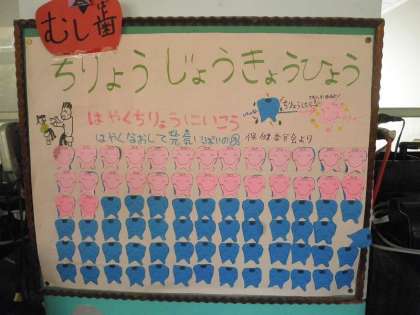 むし歯
ちりょう じょうきょうひょう
はやくちりょうにいこう
はやくなおして元気いっぱいの歯
保健委員会より